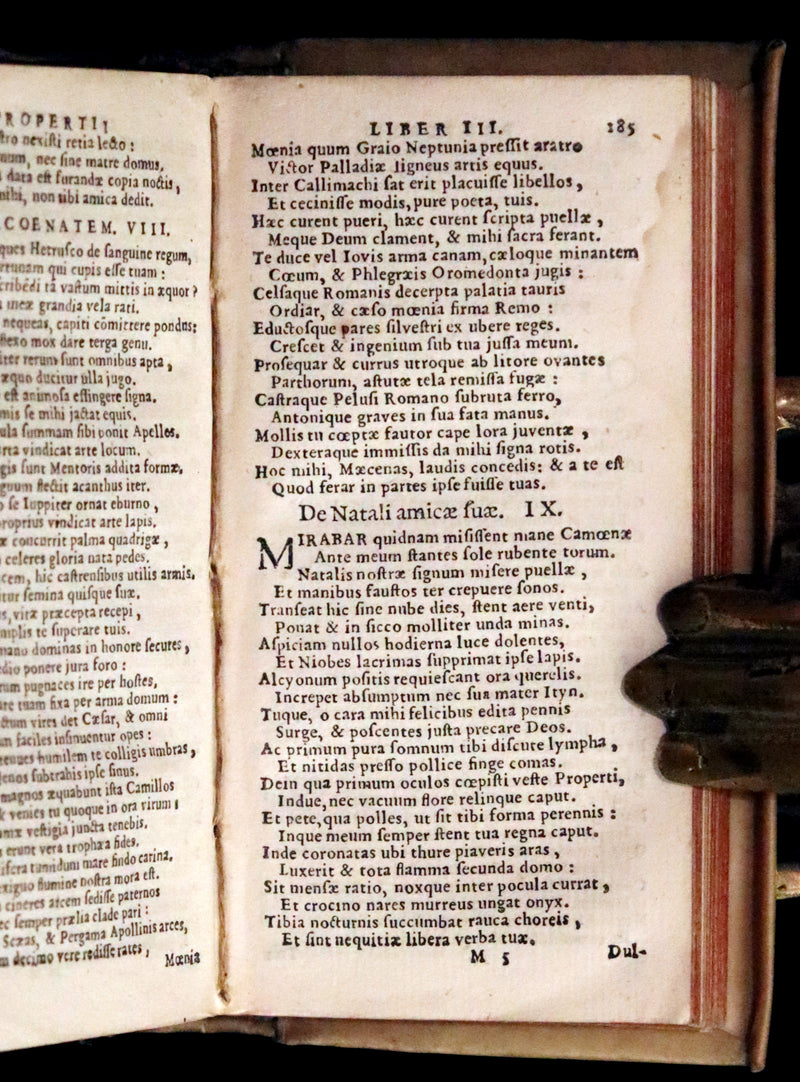 ROPERTII
nexisti retia lecto :
num, nec sine matre domus,
data est furandæ copia noctis,
mihi, non tibi amica dedit.
COENATEM. VIII.
ques Hetrusco de sanguine regum,
qui cupis esse tuam :
tā vastum mittis in æquor ?
meæ grandia vela rati.
nequeas, capiti cōmittere pondus:
flexo mox dare terga genu.
iter rerum sunt omnibus apta,
æquo ducitur ulla jugo.
est animosa effingere signa.
mis se mihi jactat equis.
summam sibi ponit Apelles.
vindicat arte locum.
gis sunt Mentoris addita formæ.
flectit acanthus iter.
se Iuppiter ornat eburno,
roprius vindicat arte lapis.
concurrit palma quadrigæ,
celeres gloria nata pedes.
cem, hic castrensibus utilis armis.
tur semina quisque suæ.
s, vitæ præcepta recepi,
mplis te superare tuis.
mano dominas in honore secures,
dio ponere jura foro :
rum pugnaces ire per hostes,
are tuam fixa per arma domum :
ctum vires det Cæsar, & omni
m faciles insinuentur opes :
tenues humilem te colligis umbras,
enos subtrahis ipse sinus.
magnos æquabunt ista Camillos
venies tu quoque in ora virum ;
mæ vestigia juncta tenebis.
erunt vera trophæa fides.
mare findo carina,
exiguo flumine nostra mora est.
cineres arcem sedisse paternos
ec semper prælia clade pari :
Scæas, & Pergama Apollinis arces,
decimo vere redisse rates,
Mœnia
LIBER III. 185
Mœnia quum Graio Neptunia pressit aratro
Victor Palladiæ ligneus artis equus.
Inter Callimachi sat erit placuisse libellos,
Et cecinisse modis, pure poeta, tuis.
Hæc curent pueri, hæc curent scripta puellæ,
Meque Deum clament, & mihi sacra ferant.
Te duce vel Iovis arma canam, cæloque minantem
Cœum, & Phlegræis Oromedonta jugis :
Celsaque Romanis decerpta palatia tauris
Ordiar, & cæso mœnia firma Remo :
Eductosque pares silvestri ex ubere reges.
Crescet & ingenium sub tua jussa meum.
Prosequar & currus utroque ab litore ovantes
Parthorum, astutæ tela remissa fugæ :
Castraque Pelusi Romano subruta ferro,
Antonique graves in sua fata manus.
Mollis tu cœptæ fautor cape lora juventæ,
Dexteraque immissis da mihi signa rotis.
Hoc mihi, Mæcenas, laudis concedis: & a te est
Quod ferar in partes ipse fuisse tuas.
De Natali amicæ suæ. IX.
MIRABAR quidnam misissent mane Camœnæ
Ante meum stantes sole rubente torum.
Natalis nostræ signum misere puellæ,
Et manibus faustos ter crepuere sonos.
Transeat hic sine nube dies, stent aere venti,
Ponat & in sicco molliter unda minas.
Aspiciam nullos hodierna luce dolentes,
Et Niobes lacrimas supprimat ipse lapis.
Alcyonum positis requiescant ora querelis.
Increpet absumptum nec sua mater Ityn.
Tuque, o cara mihi felicibus edita pennis
Surge, & poscentes justa precare Deos.
Ac primum pura somnum tibi discute lympha,
Et nitidas presso pollice finge comas.
Dein qua primum oculos cœpisti veste Properti,
Indue, nec vacuum flore relinque caput.
Et pete, qua polles, ut sit tibi forma perennis :
Inque meum semper stent tua regna caput.
Inde coronatas ubi thure piaveris aras,
Luxerit & tota flamma secunda domo :
Sit mensæ ratio, noxque inter pocula currat,
Et crocino nares murreus ungat onyx.
Tibia nocturnis succumbat rauca choreis,
Et sint nequitiæ libera verba tuæ.
M 5 Dul-